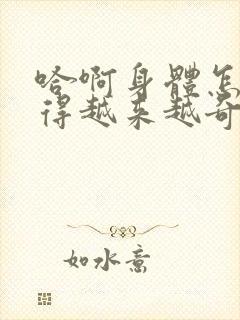 哈啊身體怎
得越来越奇
如水意